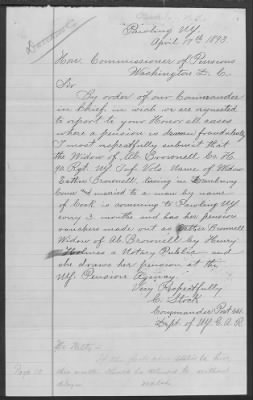 Pawling NY
April 17th 1893
Hon. Commissioner of Pensions
Washington D. C.
Sir
By order of our Commander
in Chief, in wich we are requested
to report to your Honor all cases
where a pension is drawn fraudulently
I most respectfully submit that
the Widow of Ab Brownell Co. H.
Regt NY Inf Vols Name of Widow
Esther Brownell living in
Conn and married to a man by name
of Cook is comming to Pawling NY
every 3 months and has her pension
vouchers made out as Esther Brownell
Widow of Ab. Brownell by Henry
Holmes a Notary Public and
she draws her pension at the
NY. Pension Agency.
Very Respectfully
C. Stock
Commander Post
Dept of NY G. A. R.